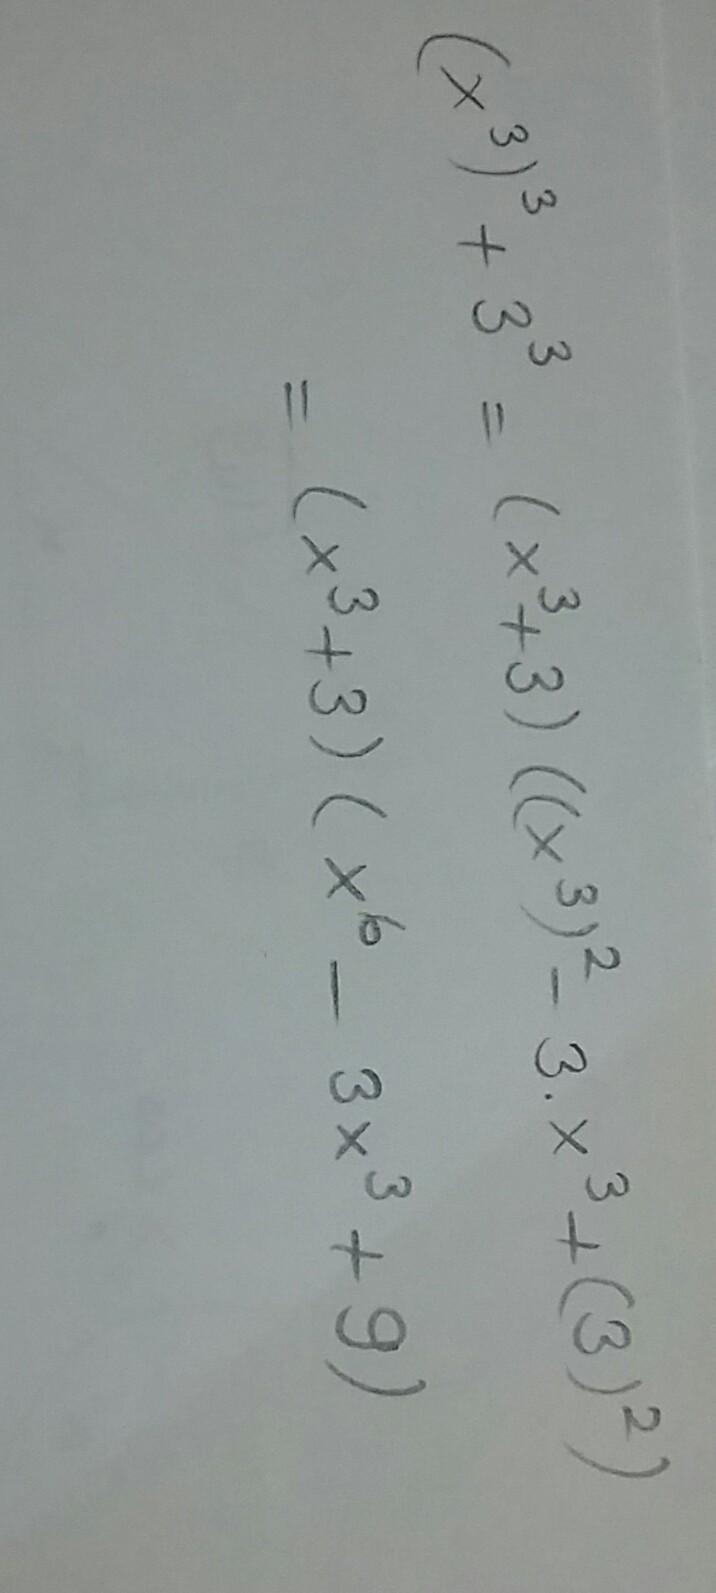 (x³)³ + 3³ = (x³+3) ((x³)² - 3.x³ + (3)²)
= (x³+3) (x⁶ - 3x³ + 9)